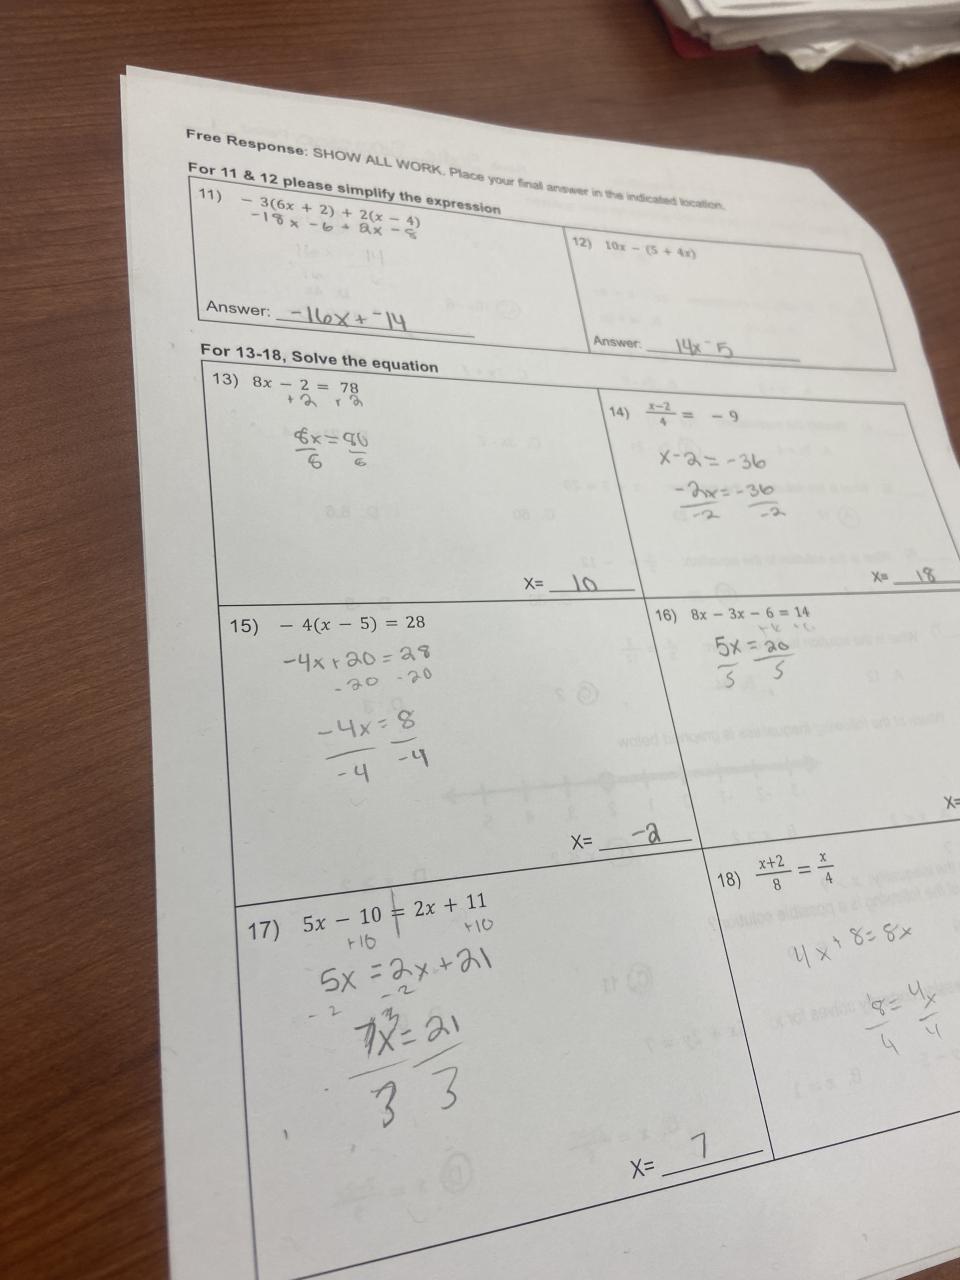 Free Response: SHOW ALL WORK. Place your final answer in the indicated location.
For 11 & 12 please simplify the expression
11) − 3(6x + 2) + 2(x − 4)
-18x -6 + 2x -8
Answer: -16x + -14
12) 10x − (5 + 4x)
Answer: 14x - 5
For 13-18, Solve the equation
13) 8x − 2 = 78
+2 +2
8x = 80
8 8
X= 10
14) x−2/4 = − 9
x-2 = -36
-2x = -36
-2 -2
X= 18
15) − 4(x − 5) = 28
-4x+20 = 28
-20 -20
-4x = 8
-4 -4
X= -2
16) 8x − 3x − 6 = 14
+6 +6
5x = 20
5 5
X=
17) 5x − 10 = 2x + 11
+10 +10
5x = 2x + 21
- 2 - 2
3x = 21
3 3
X= 7
18) x+2/8 = x/4
4x + 8 = 8x
8 = 4x
4 4